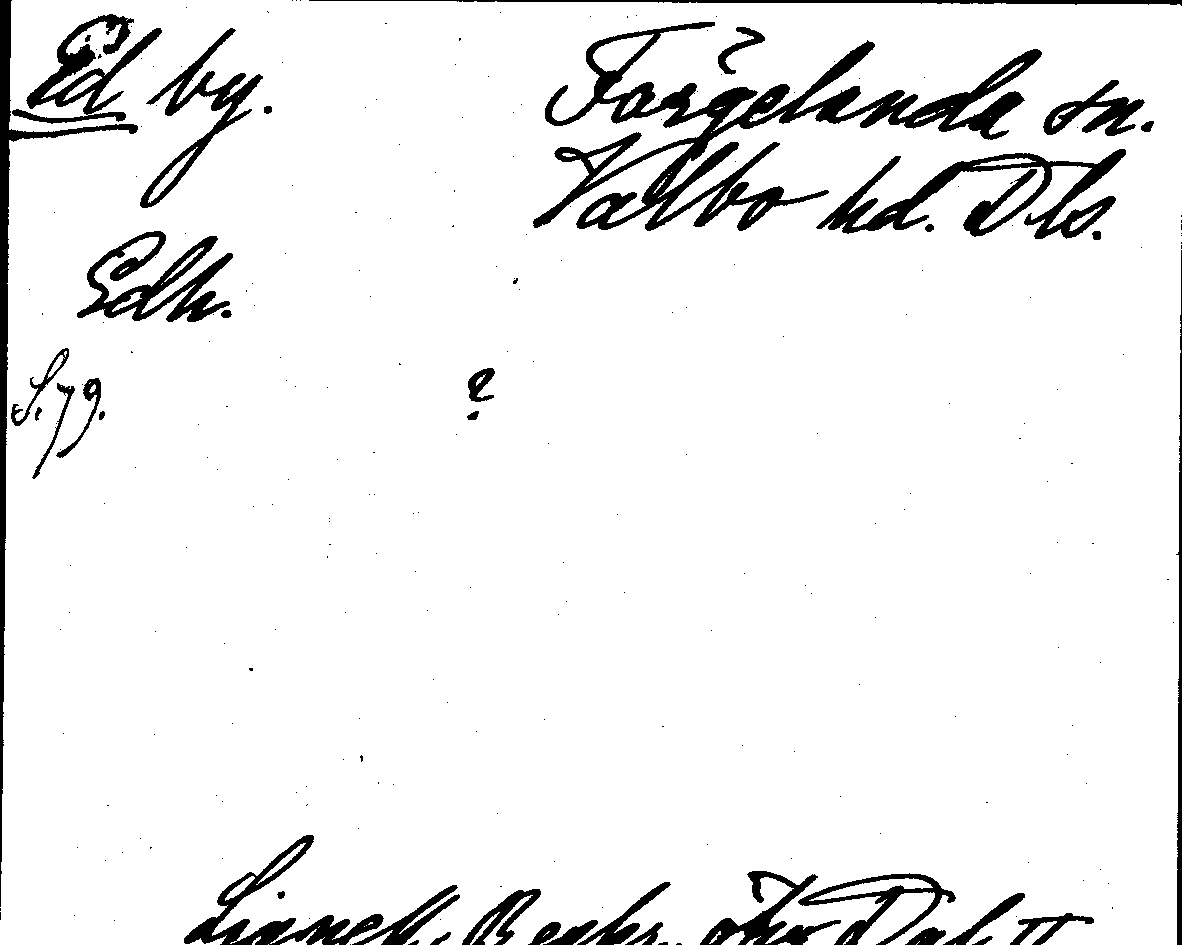 Ed by.
Färgelanda sn.
Valbo hd. Dls.
Edh.
S. 79.
?
Lignell, Beskr. öfver Dal II